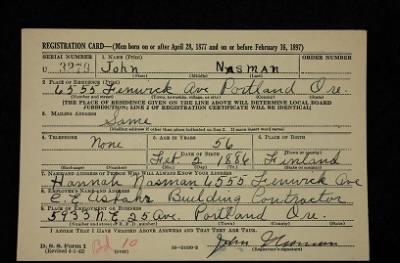 REGISTRATION CARD—(Men born on or after April 28, 1877 and on or before February 16, 1897)
SERIAL NUMBER 1. NAME (Print) ORDER NUMBER
U 3279 John Nasman
(First) (Middle) (Last)
2. PLACE OF RESIDENCE (Print)
6555 Fenwick Ave Portland Ore.
(Number and street) (Town, township, village, or city) (County) (State)
[THE PLACE OF RESIDENCE GIVEN ON THE LINE ABOVE WILL DETERMINE LOCAL BOARD
JURISDICTION; LINE 2 OF REGISTRATION CERTIFICATE WILL BE IDENTICAL]
3. MAILING ADDRESS
Same
[Mailing address if other than place indicated on line 2. If same insert word same]
4. TELEPHONE 5. AGE IN YEARS 6. PLACE OF BIRTH
None 56
DATE OF BIRTH
Feb 2 1886 Finland
(Exchange) (Number) (Mo.) (Day) (Yr.) (State or country)
7. NAME AND ADDRESS OF PERSON WHO WILL ALWAYS KNOW YOUR ADDRESS
Hannah Nasman 6555 Fenwick Ave
8. EMPLOYER'S NAME AND ADDRESS
Building Contractor
9. PLACE OF EMPLOYMENT OR BUSINESS
5933 N.E. 25 Ave. Portland Ore.
(Number and street or R. F. D. number) (Town) (County) (State)
I AFFIRM THAT I HAVE VERIFIED ABOVE ANSWERS AND THAT THEY ARE TRUE.
D. S. S. Form 1
(Revised 4-1-42) (over) 10 John Nasman
(Registrant's signature)